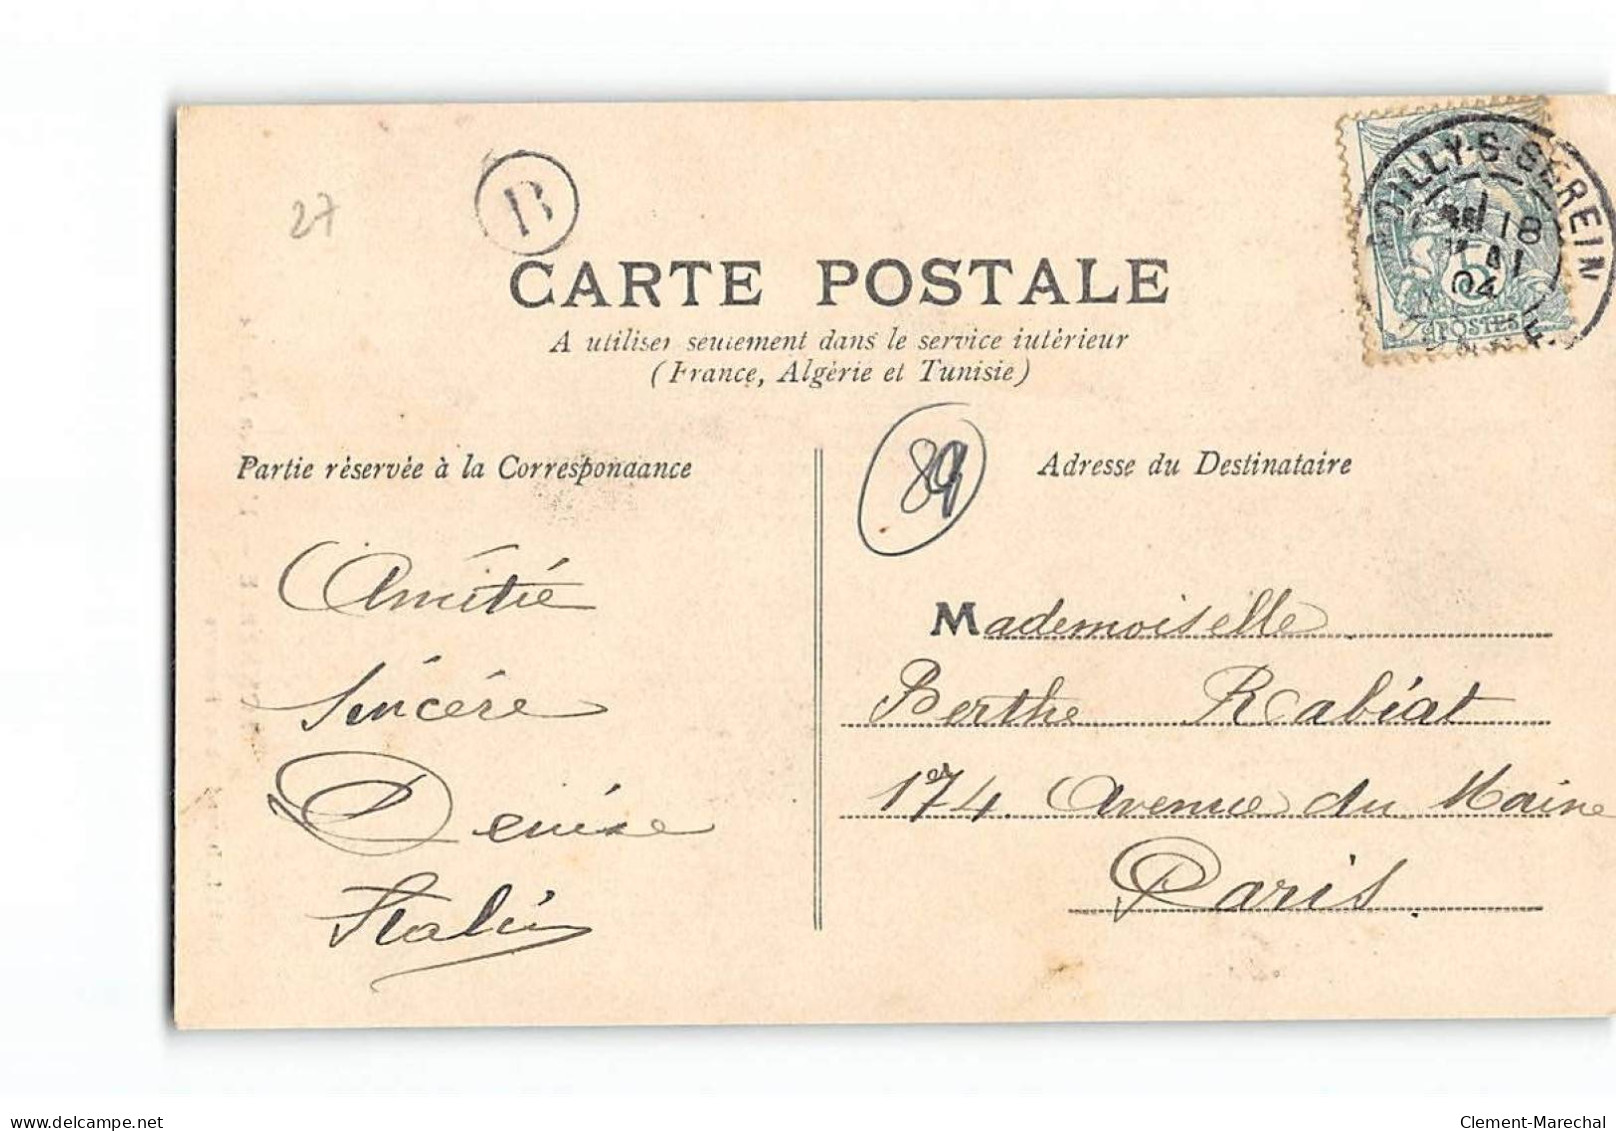 27
B
CARTE POSTALE
A utiliser seulement dans le service intérieur
(France, Algérie et Tunisie)
NOILLY-S-SEREIN
18
MAI
04
5
POSTES
YONNE
89
Partie réservée à la Correspondance
Adresse du Destinataire
Amitié
Sincère
Denise
Mademoiselle
Berthe Rabiat
174. Avenue du Maine
Paris.
delcampe.net
Clement-Marechal